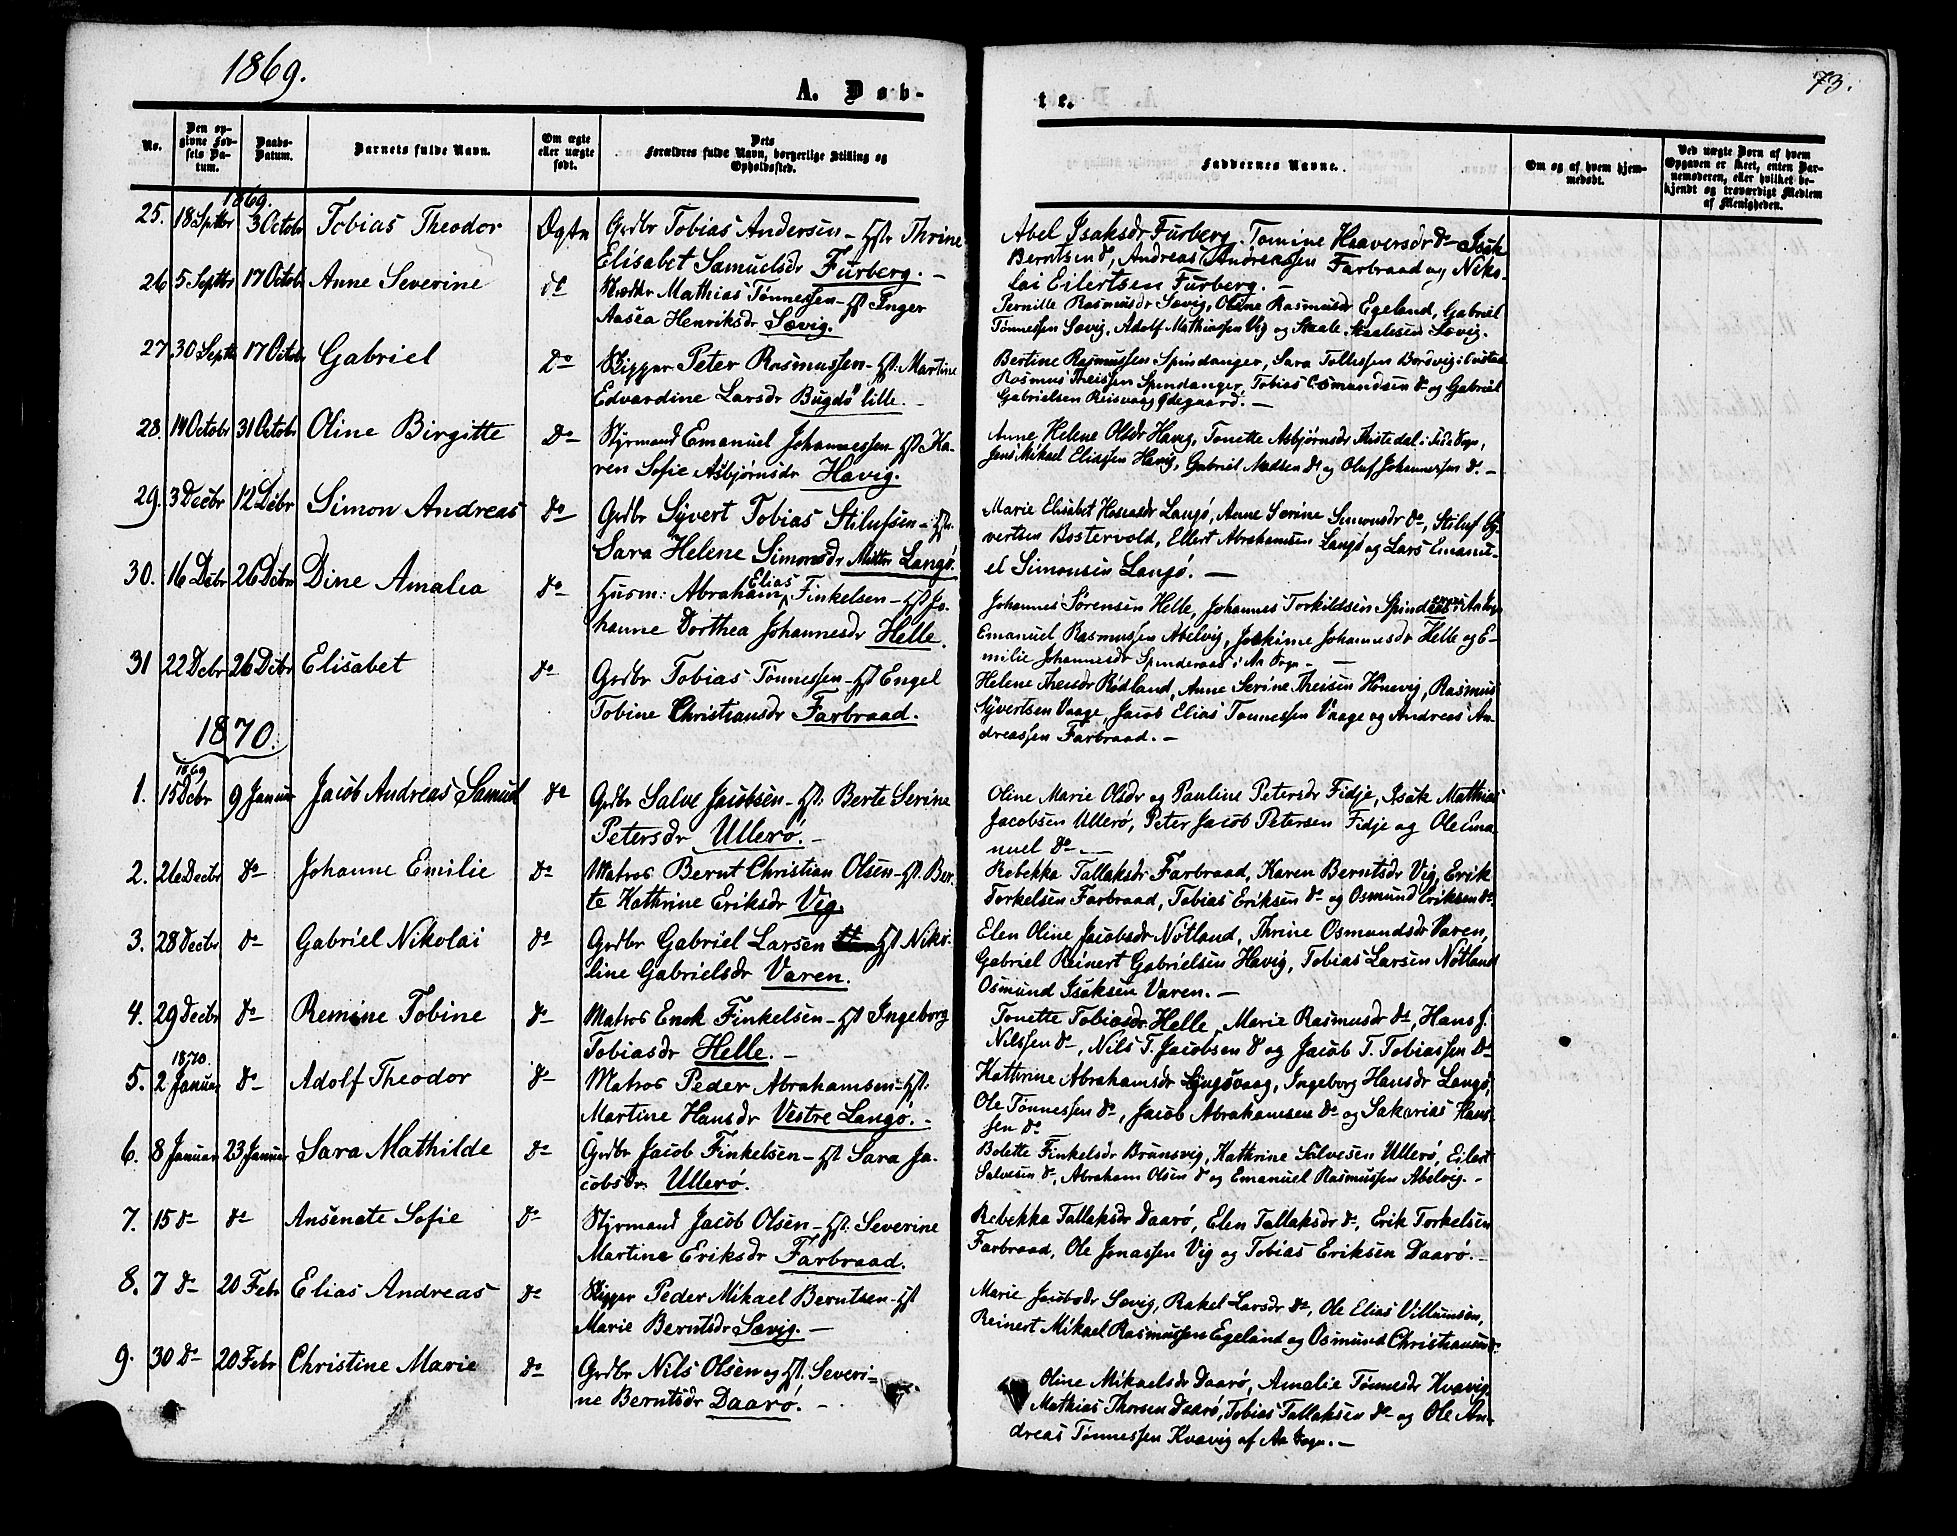 1869.
A. Døb-
te.
73.
No.
Den op-
givne Fød-
sels Da-
tum.
Daabs-
Datum.
Barnets fulde Navn.
Om ægte
eller uægte
født.
Dets
Forældres fulde Navn, borgerlige Stilling og
Opholdssted.
Faddernes Navne.
Om og af hvem hjem-
medøbt.
Ved uægte Born af hvem
Opgaven er skeet, enten Bar-
nemoderen, eller hvilket be-
kjendt og troværdigt Medlem
af Menigheden.
1869.
25. 18 Septbr 3 Octobr Tobias Theodor Ægte Grdbr Tobias Andersen – Hst Thrine
Elisabet Samuelsdr Furberg. –
Abel Isaksdr Furberg, Tomine Haaversdr do Isak
Berntsen do, Andreas Andreassen Farbraad og Niko-
lai Eilertsen Furberg. –
26 5 Septbr 17 Octobr Anne Severine do Mathias Tønnessen – Hst Inger
Aasea Henriksdr Sævig.
Pernille Rasmusdr Sævig, Oline Rasmusdr Egeland, Gabriel
Tønnessen Sævig, Adolf Mathiassen Vig og Staale Staalesen Sævig.
27. 30 Septbr 17 Octobr Gabriel Do Skipper Peter Rasmussen – Hst. Martine
Edvardine Larsdr Bugdø lille. –
Bertine Rasmussen Spindanger, Sara Tollefsen
Rasmus Theissen Spindanger, Tobias Osmundsen do og Gabriel
Gabrielsen Reisvaag Ødegaard. –
28. 14 Octobr 31 Octobr Oline Birgitte Do Styrmand Emanuel Johannessen – Hst Ka-
ren Sofie Asbjørnsdr Havig.
Anne Helene Olsdr Haug, Tonette Asbjørnsdr Thistedal i Fede Sogn,
Jens Mikael Eliassen Havig, Gabriel Madsen do og Oluf Johannessen do. –
29. 3 Decbr 12 Decbr Simon Andreas do Grdbr Syvert Tobias Stilufsen – Hst
Sara Helene Simonsdr Midtre Langø.
Marie Elisabet Langø, Anne Serine Simonsdr do, Stiluf Sy-
vertsen Bostervold, Ellert Abrahamsen Langø og Lars Emanu-
el Simonsen Langø. –
30. 16 Decbr 26 Decbr Dine Amalia do Husm: Abraham Elias Finkelsen – Hst Jo-
hanne Dorthea Johannesdr Helle.
Johannes Sørensen Helle, Johannes Torkildsen Spinderaas i Aa Sogn
Emanuel Rasmussen Abelvig, Jokime Johannesdr Helle og E-
milie Johannesdr Spinderaas i Aa Sogn –
31 22 Decbr 26 Decbr Elisabet do Grdbr Tobias Tønnessen – Hst Engel
Tobine Christiansdr Farbraad.
Helene Theisdr Rødland, Anne Serine Theisen Hønevig, Rasmus
Syvertsen Vaage, Jacob Elias Tønnessen Vaage og Andreas An-
dreassen Farbraad. –
1870.
1869
1. 15 Decbr 9 Januar Jacob Andreas Samuel do Grdbr Salve Jacobsen – Hst: Berte Serine
Petersdr Ullerø. –
Oline Marie Olsdr og Pauline Petersdr Fidje, Isak Mathias
Jacobsen Ullerø, Peter Jacob Petersen Fidje og Ole Ema-
nuel do –
2. 26 Decbr do Johanne Emilie do Matros Bernt Christian Olsen – Hst. Ber-
te Kathrine Eriksdr Vig.
Rebekka Tallaksdr Farbraad, Karen Berntsdr Vig, Erik
Torkelsen Farbraad, Tobias Eriksen do og Osmund Eriksen do.
3. 28 Decbr do Gabriel Nikolai do Grdbr Gabriel Larsen Hst Niko-
line Gabrielsdr Varen.
Elen Oline Jacobsdr Nøtland, Thrine Osmundsdr Varen,
Gabriel Reinert Gabrielsen Havig, Tobias Larsen Nøtland
Osmund Isaksen Varen. –
4. 29 Decbr do Remine Tobine do Matros Enok Finkelsen – Hst Ingeborg
Tobiasdr Helle. –
Tonette Tobiasdr Helle, Marie Rasmusdr do, Hans J.
Nilssen do, Nils T. Jacobsen do og Jacob T. Tobiassen do
1870.
5. 2 Januar do Adolf Theodor do Matros Peder Abrahamsen – Hst:
Martine Hansdr Vestre Langø. –
Kathrine Abrahamsdr Lyngsvaag, Ingeborg Hansdr Langø,
Ole Tønnessen do, Jacob Abrahamsen do og Sakarias Hans-
sen do
6. 8 Januar 23 Januar Sara Mathilde do Grdbr Jacob Finkelsen – Hst Sara Ja-
cobsdr. Ullerø.
Bolette Finkelsdr Brunsvig, Kathrine Salvesen Ullerø, Eilert
Salvesen do, Abraham Olsen do og Emanuel Rasmussen Abelvig. –
7. 15 do do Ansenete Sofie do Styrmand Jacob Olsen – Hst. Severine
Martine Eriksdr Farbraad.
Rebekka Tallaksdr Daarø, Elen Tallaksdr do, Erik Torkelsen
Farbraad, Ole Jonassen Vig og Tobias Eriksen Daarø. –
8. 7 do 20 Febr Elias Andreas do Skipper Peder Mikael Berntsen – Hst
Marie Berntsdr Sævig. –
Marie Jacobsdr Sævig, Rakel Larsdr do, Ole Elias Villumsen,
Reinert Mikael Rasmussen Egeland og Osmund Christiansen do
9. 30 do 20 Febr Christine Marie do Grdbr Nils Olsen og Hst. Severi-
ne Berntsdr Daarø. –
Oline Mikaelsdr Daarø, Amalie Tønnesdr Kvavig
Mathias Thorsen Daarø, Tobias Tallaksen do og Ole An-
dreas Tønnessen Kvavig af Aa Sogn. –